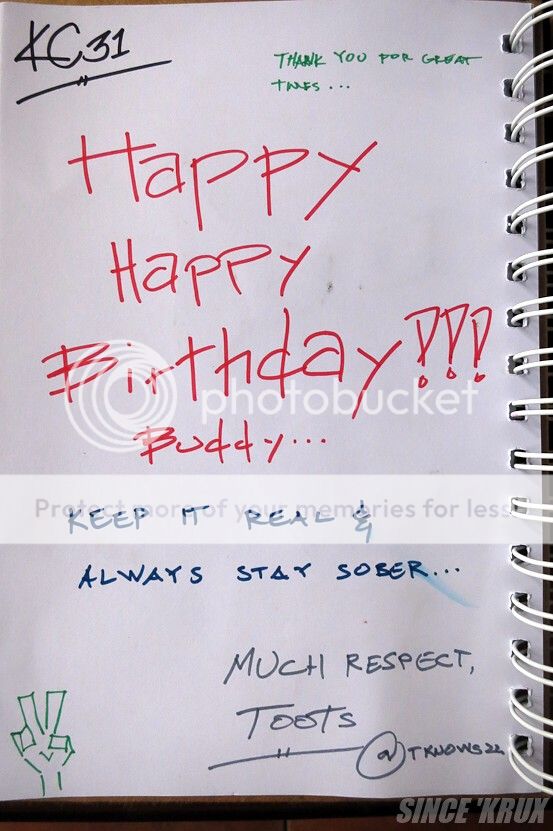 KC31
THANK YOU FOR GREAT
TIMES...
Happy
Happy
Birthday!!!
photobucket
Buddy...
Protect more of your memories for less!
KEEP IT REAL &
ALWAYS STAY SOBER...
MUCH RESPECT,
TOOTS
@TKNOWS22
SINCE 'KRUX